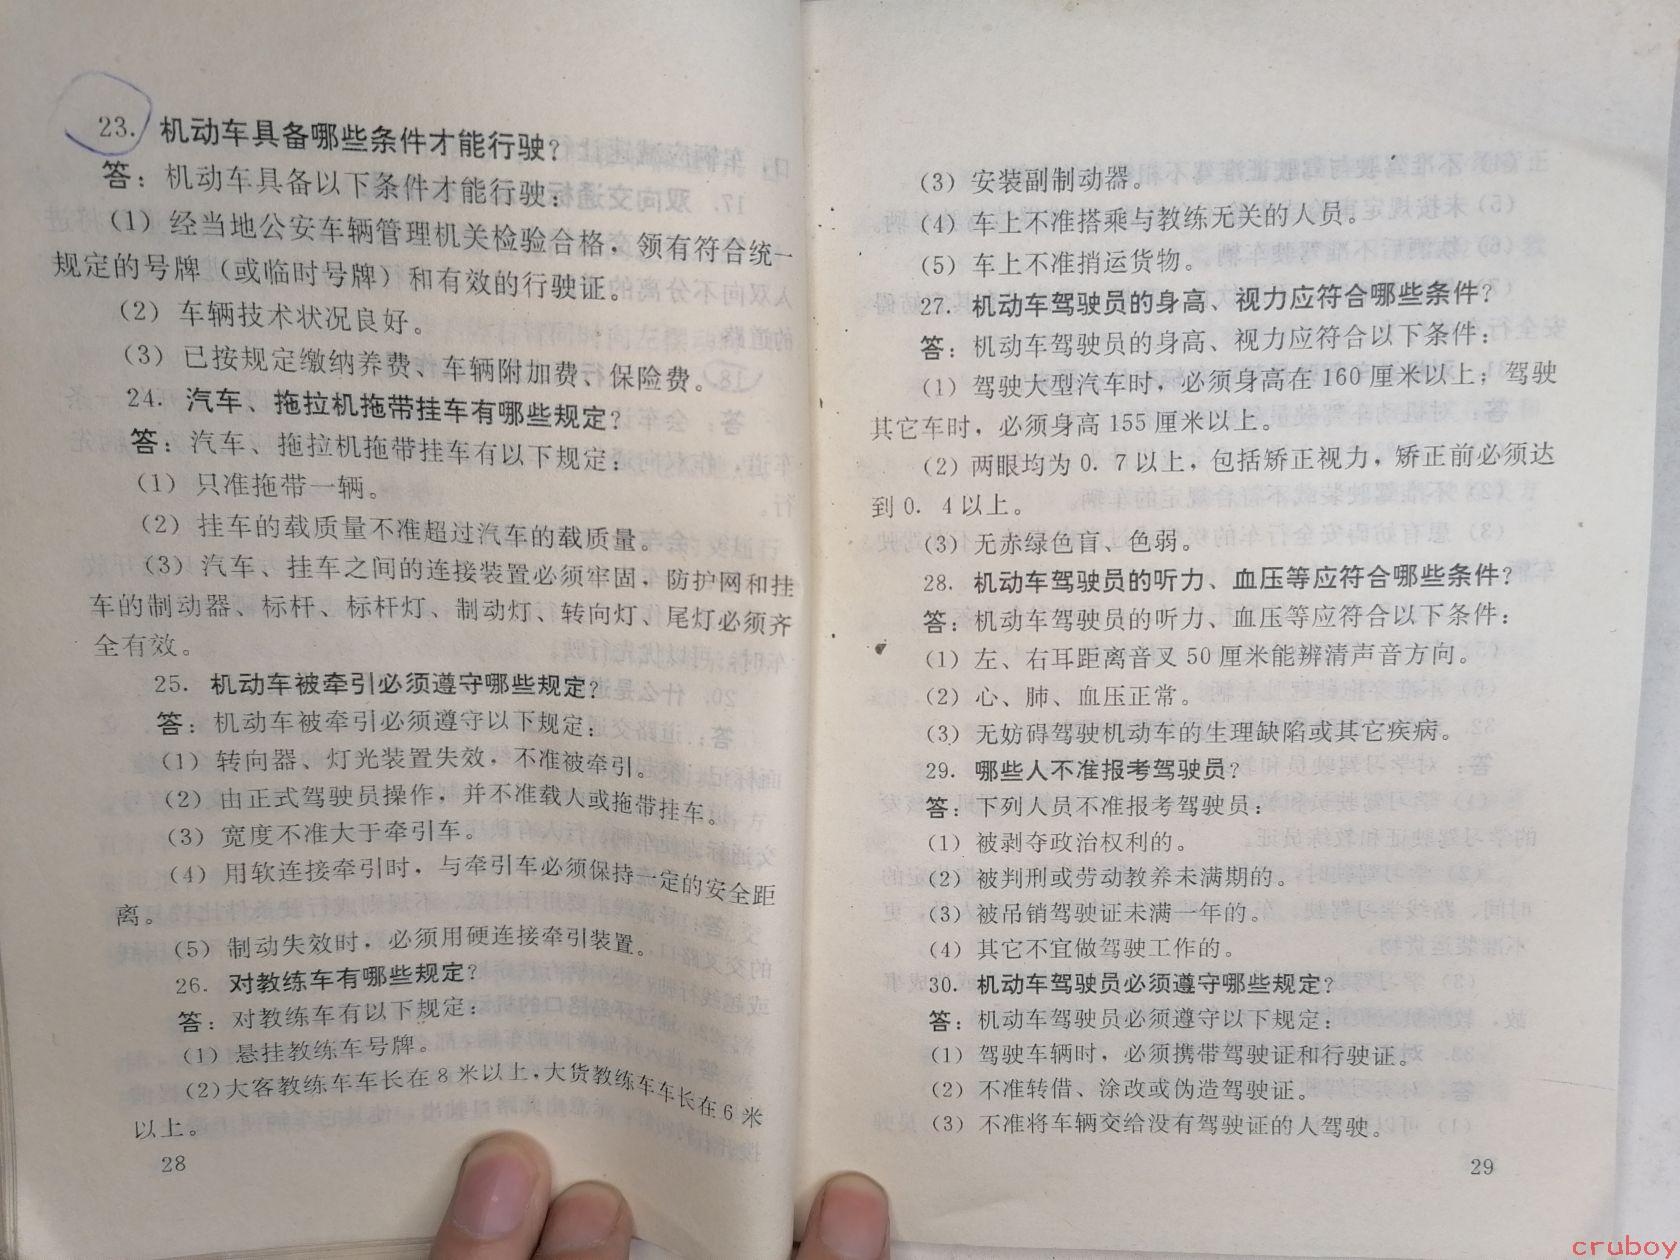 23. 机动车具备哪些条件才能行驶?
答: 机动车具备以下条件才能行驶:
(1) 经当地公安车辆管理机关检验合格, 领有符合统一
规定的号牌 (或临时号牌) 和有效的行驶证。
(2) 车辆技术状况良好。
(3) 已按规定缴纳养费、车辆附加费、保险费。
24. 汽车、拖拉机拖带挂车有哪些规定?
答: 汽车、拖拉机拖带挂车有以下规定:
(1) 只准拖带一辆。
(2) 挂车的载质量不准超过汽车的载质量。
(3) 汽车、挂车之间的连接装置必须牢固, 防护网和挂
车的制动器、标杆、标杆灯、制动灯、转向灯、尾灯必须齐
全有效。
25. 机动车被牵引必须遵守哪些规定?
答: 机动车被牵引必须遵守以下规定:
(1) 转向器、灯光装置失效, 不准被牵引。
(2) 由正式驾驶员操作, 并不准载人或拖带挂车。
(3) 宽度不准大于牵引车。
(4) 用软连接牵引时, 与牵引车必须保持一定的安全距
离。
(5) 制动失效时, 必须用硬连接牵引装置。
26. 对教练车有哪些规定?
答: 对教练车有以下规定:
(1) 悬挂教练车号牌。
(2) 大客教练车车长在 8 米以上, 大货教练车车长在 6 米
以上。
28
(3) 安装副制动器。
(4) 车上不准搭乘与教练无关的人员。
(5) 车上不准捎运货物。
27. 机动车驾驶员的身高、视力应符合哪些条件?
答: 机动车驾驶员的身高、视力应符合以下条件:
(1) 驾驶大型汽车时, 必须身高在 160 厘米以上; 驾驶
其它车时, 必须身高 155 厘米以上。
(2) 两眼均为 0. 7 以上, 包括矫正视力, 矫正前必须达
到 0. 4 以上。
(3) 无赤绿色盲、色弱。
28. 机动车驾驶员的听力、血压等应符合哪些条件?
答: 机动车驾驶员的听力、血压等应符合以下条件:
(1) 左、右耳距离音叉 50 厘米能辨清声音方向。
(2) 心、肺、血压正常。
(3) 无妨碍驾驶机动车的生理缺陷或其它疾病。
29. 哪些人不准报考驾驶员?
答: 下列人员不准报考驾驶员:
(1) 被剥夺政治权利的。
(2) 被判刑或劳动教养未满期的。
(3) 被吊销驾驶证未满一年的。
(4) 其它不宜做驾驶工作的。
30. 机动车驾驶员必须遵守哪些规定?
答: 机动车驾驶员必须遵守以下规定:
(1) 驾驶车辆时, 必须携带驾驶证和行驶证。
(2) 不准转借、涂改或伪造驾驶证。
(3) 不准将车辆交给没有驾驶证的人驾驶。
29
cruboy